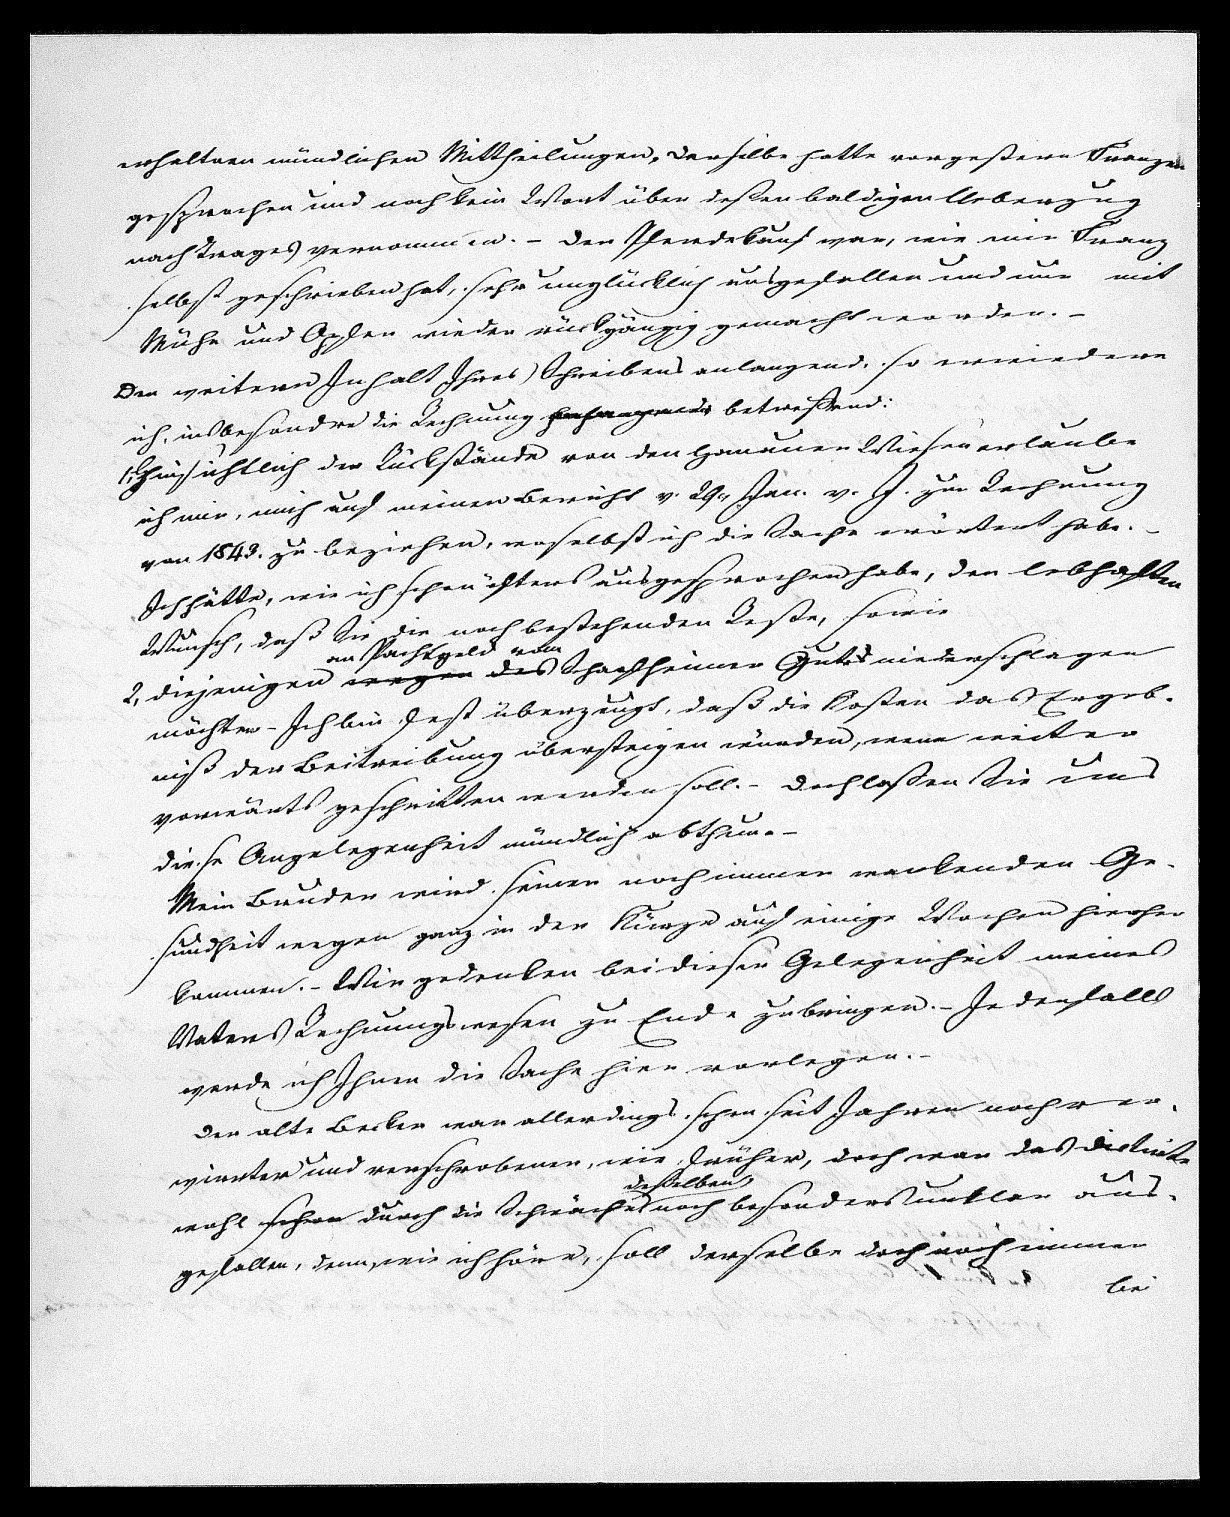 erhaltnen mündlichen Mittheilungen. Derselbe hatte vorgestern Franzen
gesprochen und noch kein Wort über deßen baldigen Ueberzug
nach Trages vernommen. – Der Pferdekauf war, wie mir Franz
selbst geschrieben hat, sehr unglücklich ausgefallen und nur mit
Mühe und Opfer wieder rückgängig gemacht worden. –
Den weitern Inhalt Ihres Schreibens anlangend, so erwiedere
ich, insbesondre die Rechnung betreffend:
1, Hinsichtlich der Rückstände von den Hanauer Wiesen erlaube
ich mir, mich auf meinen Bericht v. 29. Jan. v. J. zur Rechnung
von 1843. zu beziehen, woselbst ich die Sache erörtert habe. –
Ich hätte, wie ich schon öfters ausgesprochen habe, den lebhaften
Wunsch, daß Sie die noch bestehenden Reste, sowie
an Pachtgeld vom
2, diejenigen wegen des Schafheimer Guts niederschlagen
möchten – Ich bin fest überzeugt, daß die Kosten das Ergeb-
niß der Beitreibung übersteigen würden, wenn weiter
vorwärts geschritten werden soll. – Doch laßen Sie uns
diese Angelegenheit mündlich abthun. –
Mein Bruder wird seiner noch immer wankenden Ge-
sundheit wegen ganz in der Kürze auf einige Wochen hierher
kommen. – Wir gedenken bei dieser Gelegenheit meines
Vaters Rechnungswesen zu Ende zu bringen. – Jedenfalls
werde ich Ihnen die Sache hier vorlegen. –
Der alte Becker war allerdings schon seit Jahren noch ver-
wirrter und verschrobener, wie früher, doch war das dictirte
deßelben
wohl schon durch die Schwäche noch besonders unklar aus-
gefallen, denn, wie ich höre, soll derselbe doch noch immer
bei